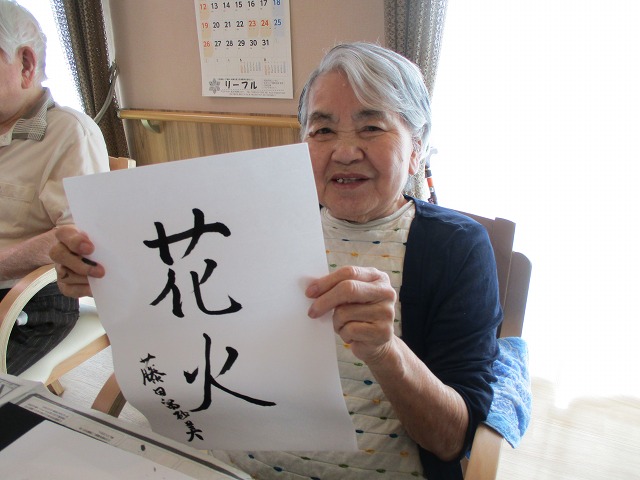 12 13 14 15 16 17 18
19 20 21 22 23 24 25
26 27 28 29 30 31
リーフル
花火
藤田
美